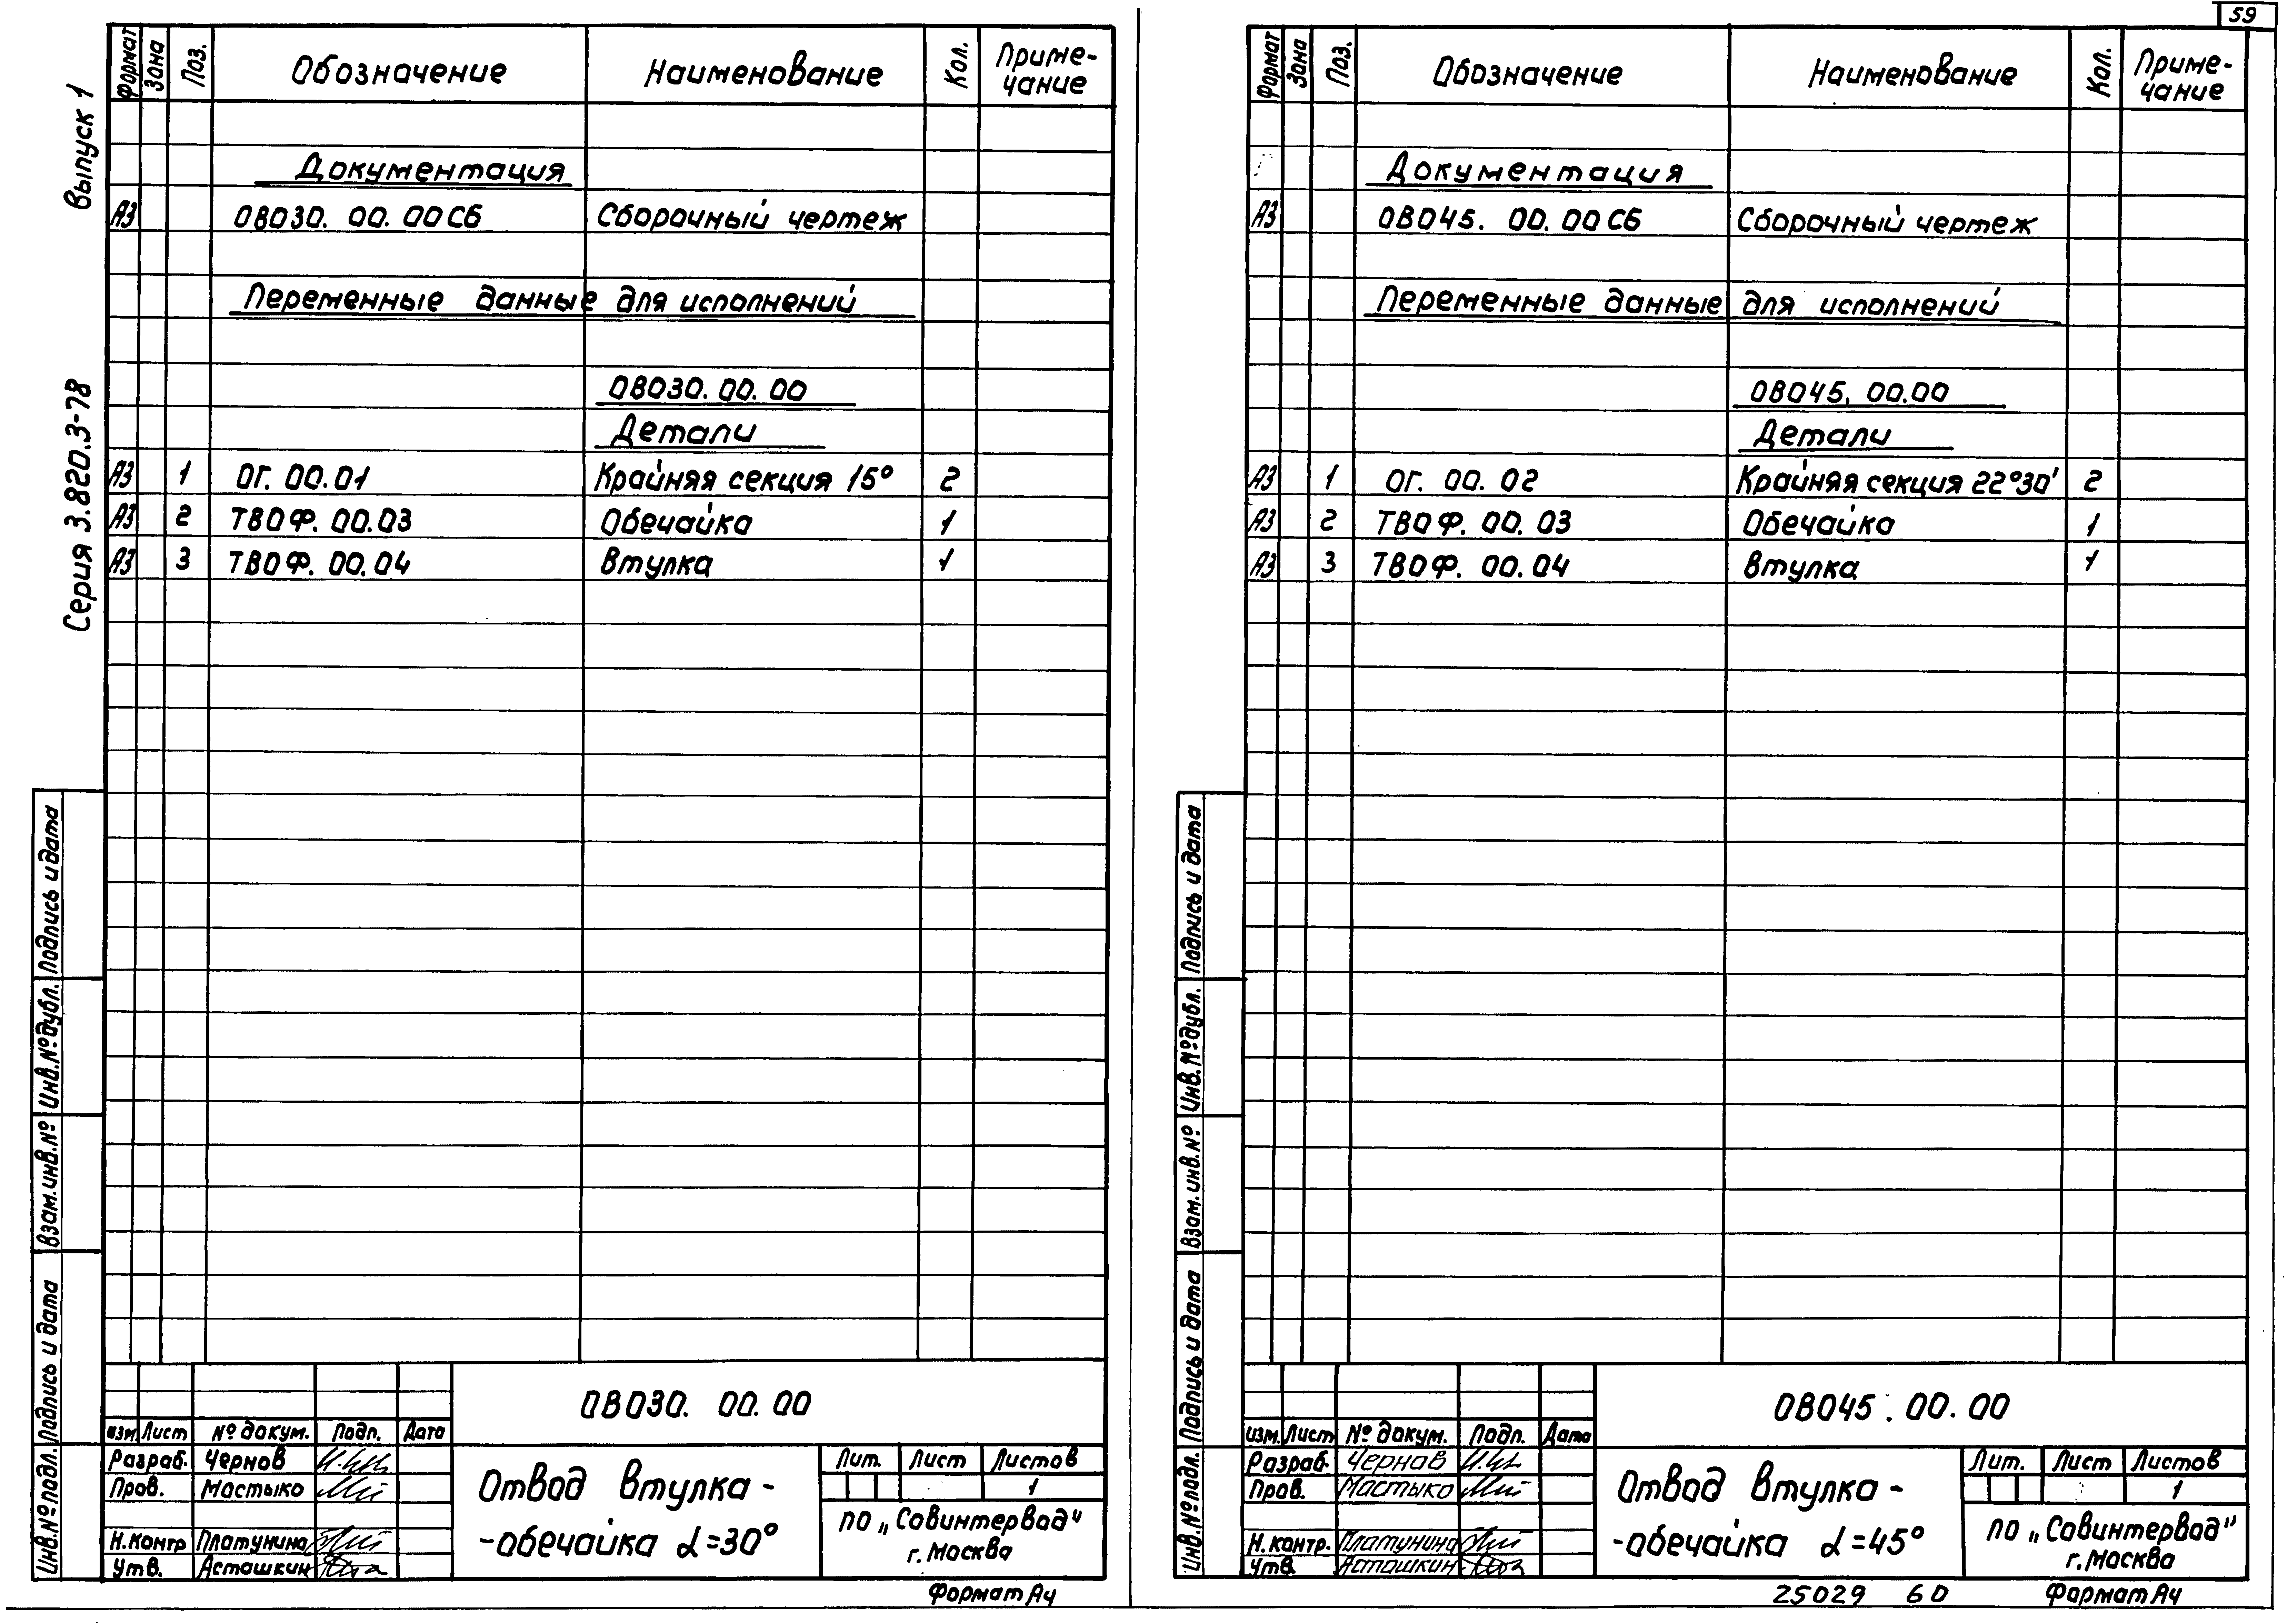 59
Выпуск 1
Серия 3.820.3-78
Формат Зона Поз. Обозначение Наименование Кол. Приме-
чание
Документация
А3 ОВ030. 00. 00 СБ Сборочный чертеж
Переменные данные для исполнений
ОВ030. 00. 00
Детали
А3 1 ОГ. 00. 01 Крайняя секция 15° 2
А3 2 ТВОФ. 00. 03 Обечайка 1
А3 3 ТВОФ. 00. 04 Втулка 1
Подпись и дата
Инв.№ дубл.
Взам. инв.№
Подпись и дата
Инв.№ подл.
ОВ030. 00. 00
изм. Лист № докум. Подп. Дата
Разраб. Чернов
Пров. Мастыко
Н.контр Платунина
Утв. Асташкин
Отвод втулка -
-обечайка α=30°
Лит. Лист Листов
1
ПО „Совинтервод"
г. Москва
Формат А4
Формат Зона Поз. Обозначение Наименование Кол. Приме-
чание
Документация
А3 ОВ045. 00. 00 СБ Сборочный чертеж
Переменные данные для исполнений
ОВ045. 00.00
Детали
А3 1 ОГ. 00. 02 Крайняя секция 22°30' 2
А3 2 ТВОФ. 00. 03 Обечайка 1
А3 3 ТВОФ. 00. 04 Втулка 1
Подпись и дата
Инв.№ дубл.
Взам. инв.№
Подпись и дата
Инв.№ подл.
ОВ045. 00. 00
изм. Лист № докум. Подп. Дата
Разраб. Чернов
Пров. Мастыко
Н.контр. Платунина
Утв. Асташкин
Отвод втулка -
-обечайка α=45°
Лит. Лист Листов
1
ПО „Совинтервод"
г. Москва
25029 60 Формат А4